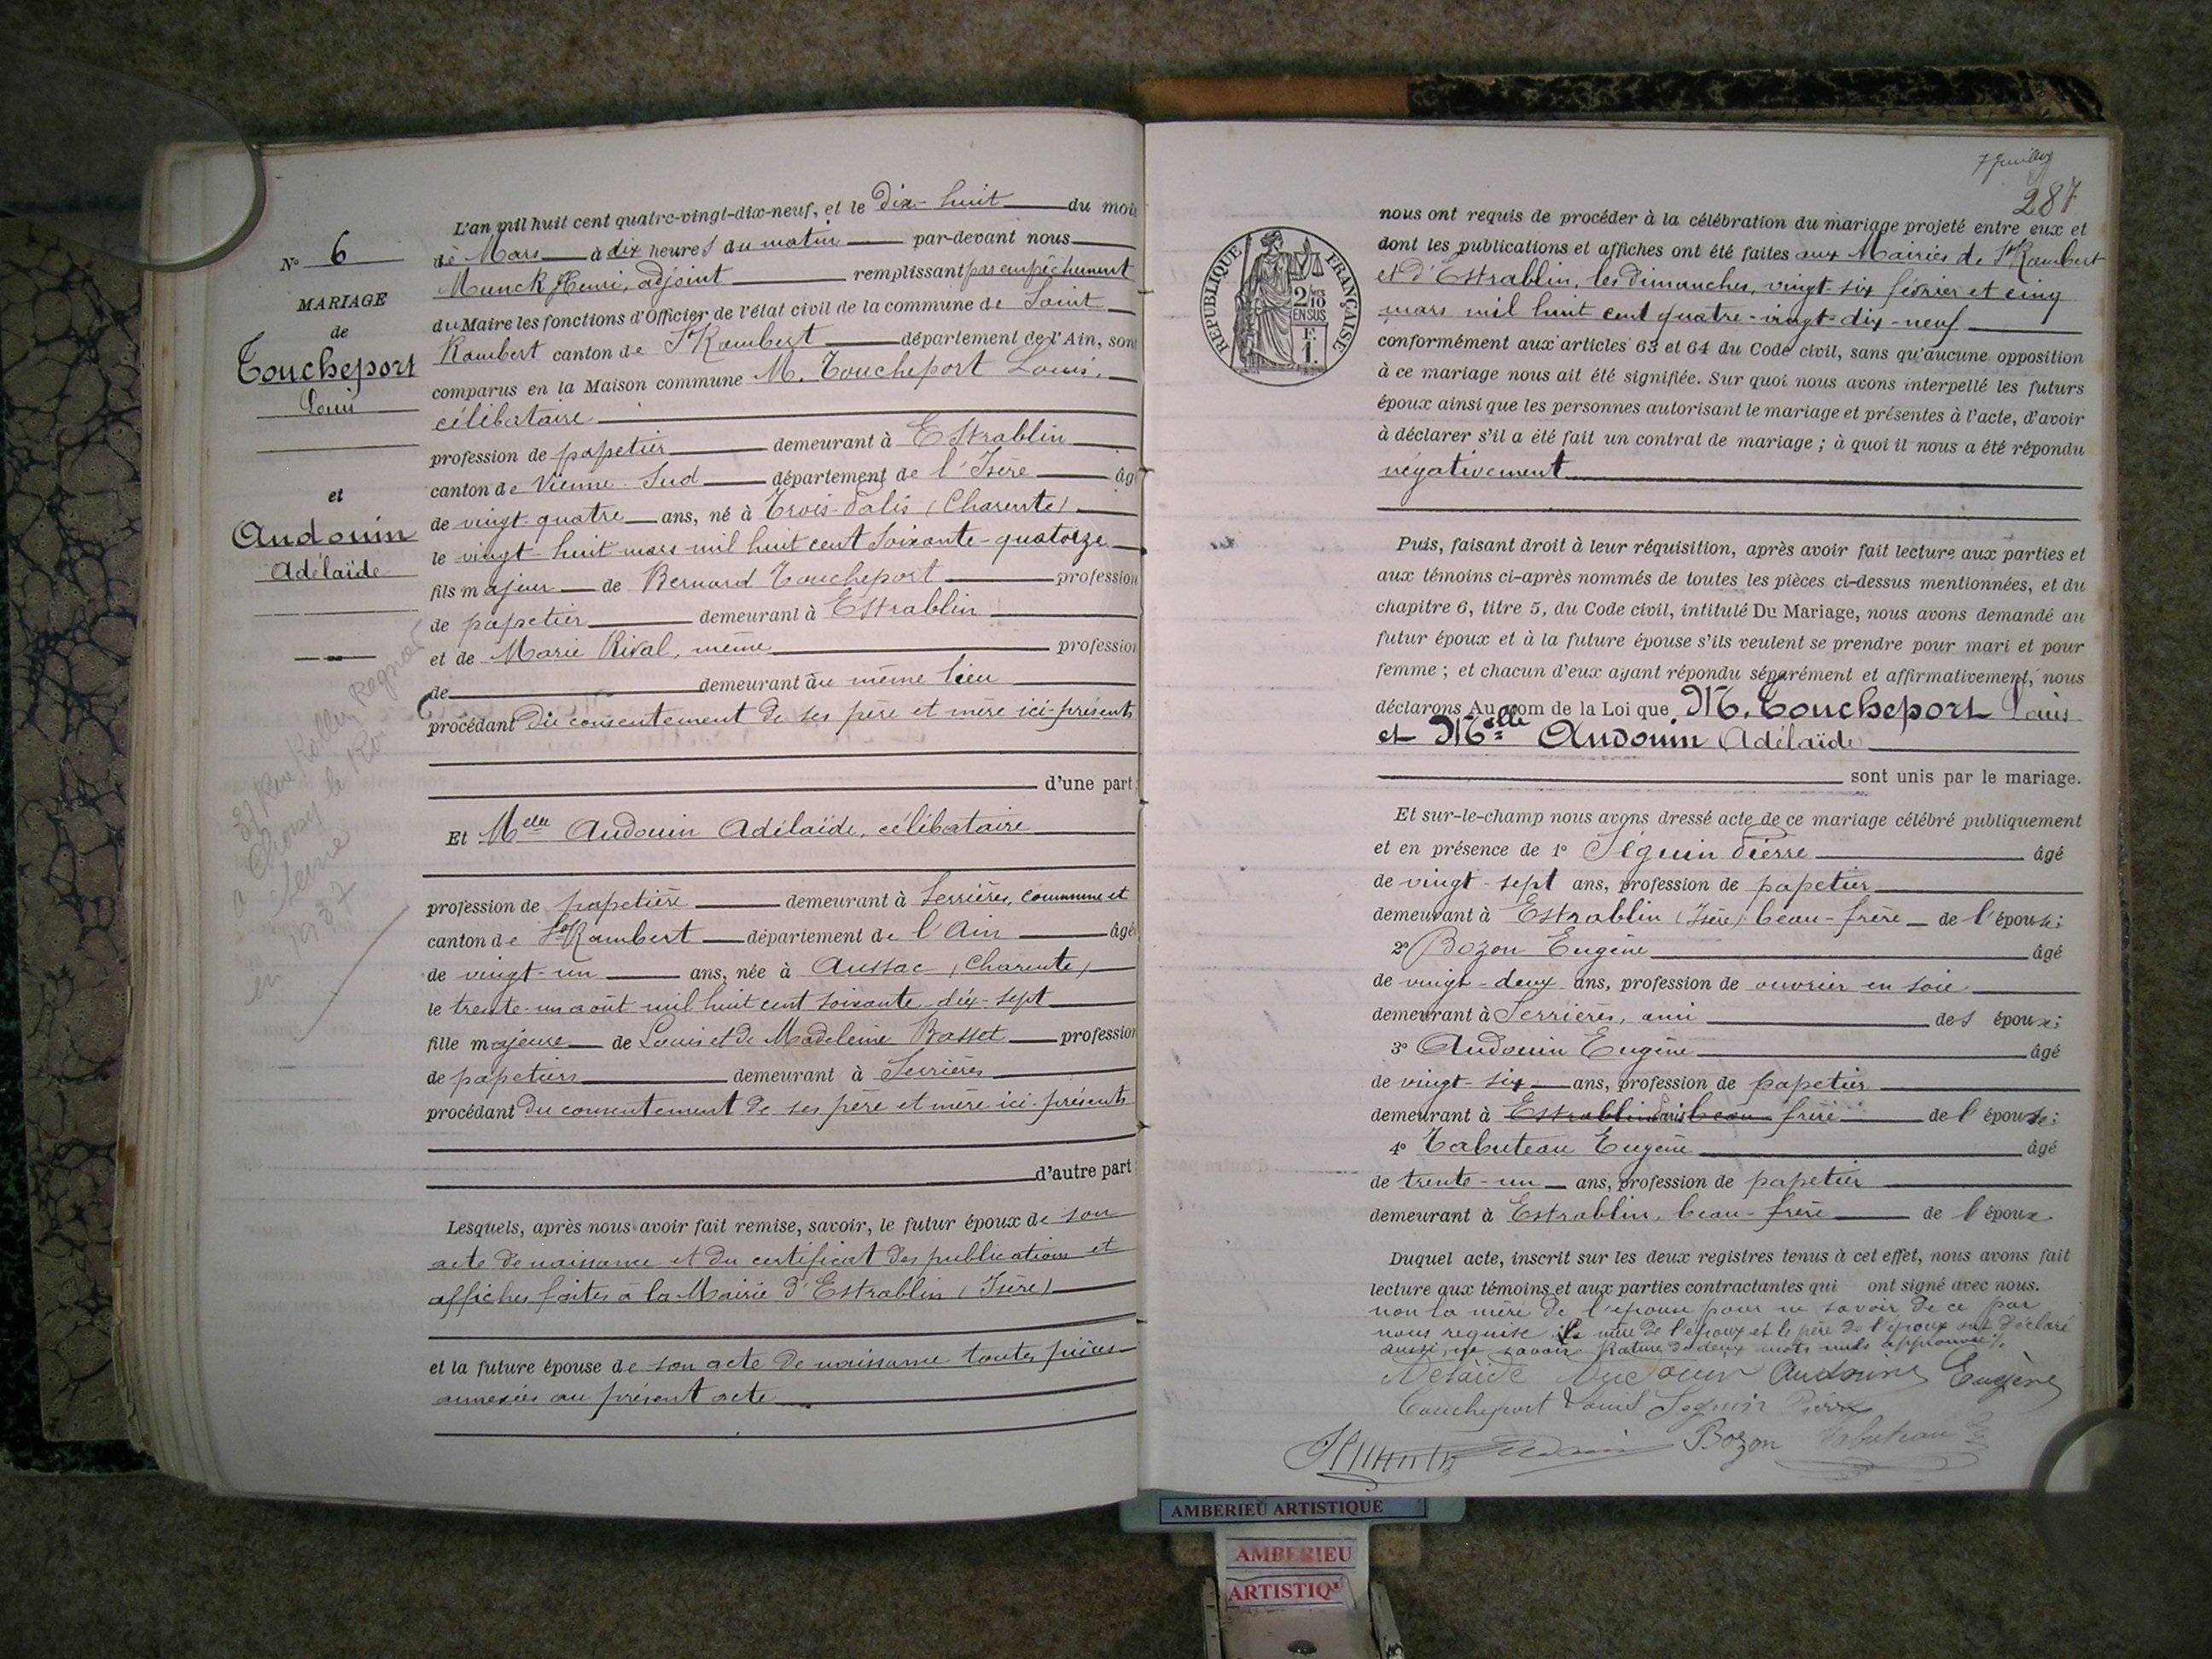 L'an mil huit cent quatre-vingt-dix-neuf, et le dix-huit du mois
de Mars à dix heures du matin par-devant nous
Munck Henri, adjoint remplissant par empêchement
du Maire les fonctions d'Officier de l'état civil de la commune de Saint
Rambert canton de St Rambert département de l'Ain, sont
comparus en la Maison commune M. Toucheport Louis,
célibataire
profession de papetier demeurant à Estrablin
canton de Vienne Sud département de l'Isère âgé
de vingt-quatre ans, né à Trois-Palis (Charente)
le vingt-huit mars mil huit cent soixante-quatorze
fils majeur de Bernard Toucheport profession
de papetier demeurant à Estrablin
et de Marie Rival, même profession
de demeurant au même lieu
procédant du consentement de ses père et mère ici-présents
d'une part;
Et Melle Audouin Adélaïde, célibataire
profession de papetière demeurant à Serrières, commune et
canton de St Rambert département de l'Ain âgée
de vingt-un ans, née à Aussac (Charente)
le trente-un août mil huit cent soixante-dix-sept
fille majeure de Louis et de Madeleine Basset profession
de papetiers demeurant à Serrières
procédant du consentement de ses père et mère ici-présents
d'autre part
Lesquels, après nous avoir fait remise, savoir, le futur époux de son
acte de naissance et du certificat des publications et
affiches faites à la Mairie d'Estrablin (Isère)
et la future épouse de son acte de naissance toutes pièces
annexées au présent acte
No 6
MARIAGE
de
Toucheport
Louis
et
Audouin
Adélaïde
37 Rue Rollin Regnaul
à Choisy le Roi
Seine
en 1937
7 feuillet
287
RÉPUBLIQUE FRANÇAISE
2/10
EN SUS
F.
1.
nous ont requis de procéder à la célébration du mariage projeté entre eux et
dont les publications et affiches ont été faites aux Mairies de St Rambert
et d'Estrablin, les dimanches, vingt-six février et cinq
mars mil huit cent quatre-vingt-dix-neuf
conformément aux articles 63 et 64 du Code civil, sans qu'aucune opposition
à ce mariage nous ait été signifiée. Sur quoi nous avons interpellé les futurs
époux ainsi que les personnes autorisant le mariage et présentes à l'acte, d'avoir
à déclarer s'il a été fait un contrat de mariage ; à quoi il nous a été répondu
négativement
Puis, faisant droit à leur réquisition, après avoir fait lecture aux parties et
aux témoins ci-après nommés de toutes les pièces ci-dessus mentionnées, et du
chapitre 6, titre 5, du Code civil, intitulé Du Mariage, nous avons demandé au
futur époux et à la future épouse s'ils veulent se prendre pour mari et pour
femme ; et chacun d'eux ayant répondu séparément et affirmativement, nous
déclarons Au nom de la Loi que M. Toucheport Louis
et Melle Audouin Adélaïde
sont unis par le mariage.
Et sur-le-champ nous avons dressé acte de ce mariage célébré publiquement
et en présence de 1o Séguin Pierre âgé
de vingt-sept ans, profession de papetier
demeurant à Estrablin (Isère) beau-frère de l'épouse;
2o Bozon Eugène âgé
de vingt-deux ans, profession de ouvrier en soie
demeurant à Serrières, ami des époux;
3o Audouin Eugène âgé
de vingt-six ans, profession de papetier
demeurant à Estrablin beau frère de l'épouse;
4o Tabuteau Eugène âgé
de trente-un ans, profession de papetier
demeurant à Estrablin, beau-frère de l'époux
Duquel acte, inscrit sur les deux registres tenus à cet effet, nous avons fait
lecture aux témoins et aux parties contractantes qui ont signé avec nous.
non la mère de l'épouse pour ne savoir de ce par
nous requise. la mère de l'époux et le père de l'époux ont déclaré
aussi ne savoir Rature de deux mots nuls approuvée
Adélaïde Audouin Audouin Eugène
Toucheport Louis Seguin Pierre
Bozon Tabuteau
AMBERIEU ARTISTIQUE
AMBERIEU
ARTISTIQ